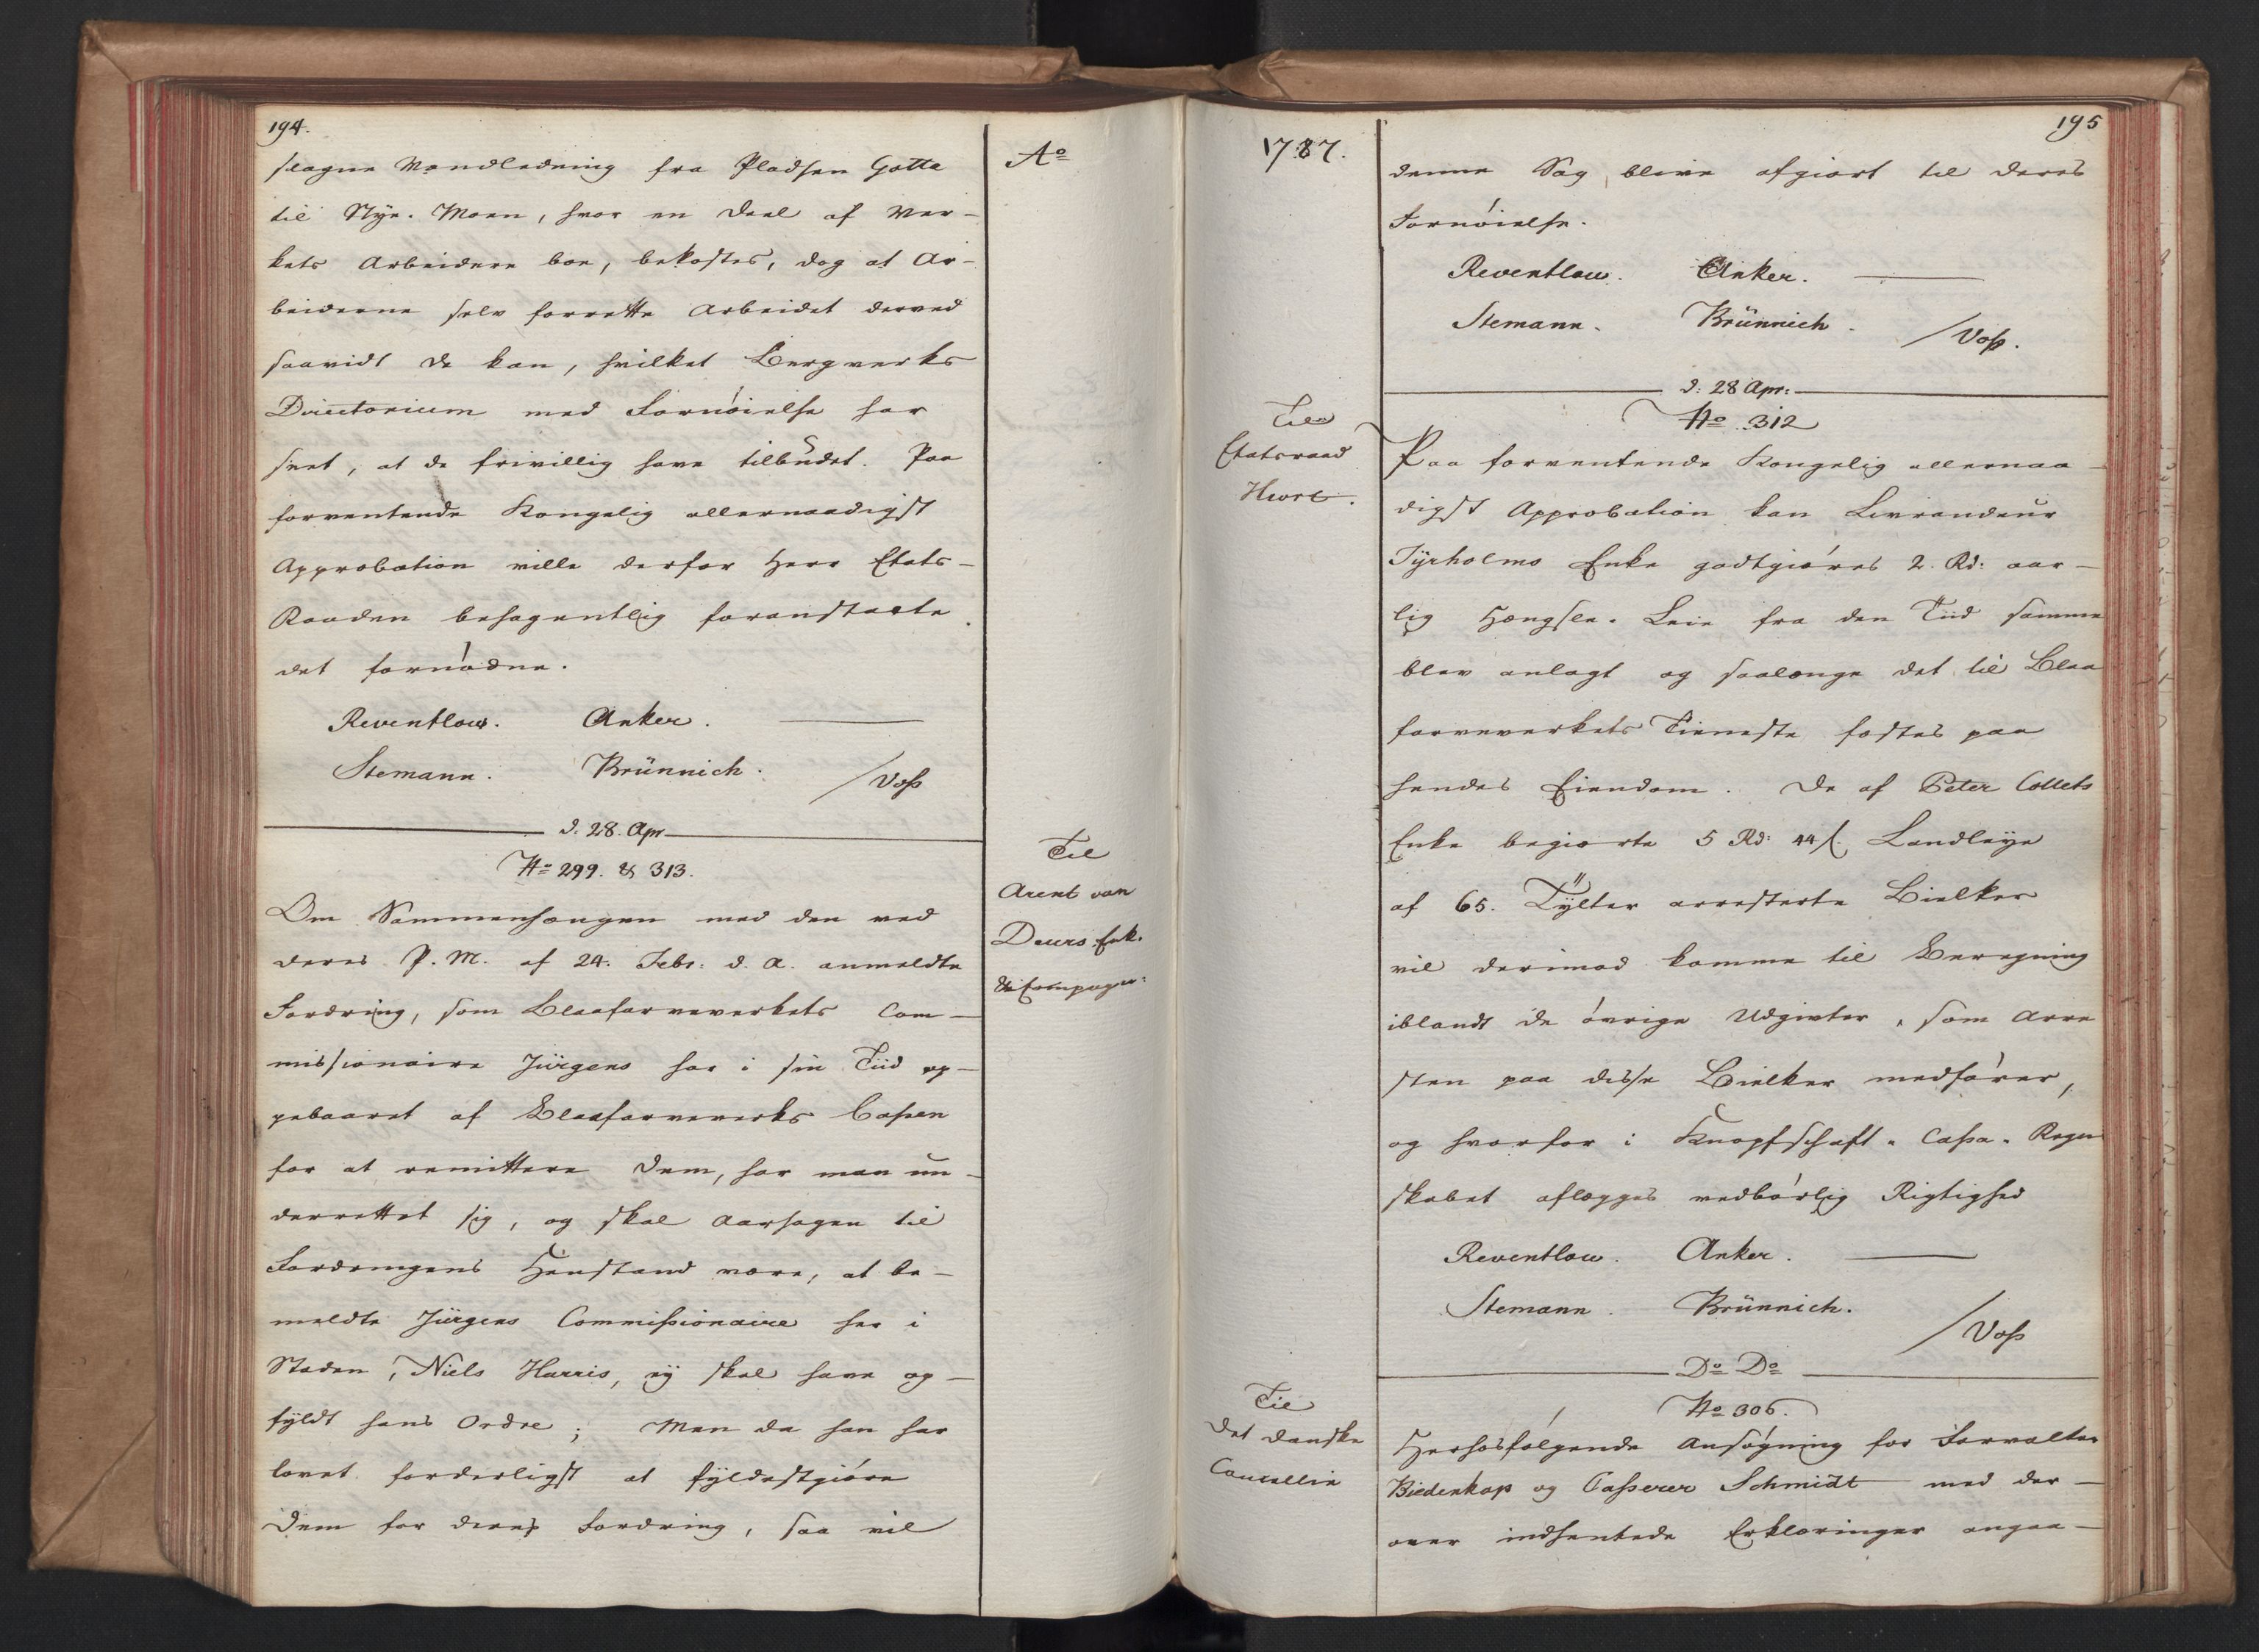 194.
slagne Vandledning fra Pladsen Gotta
til Nye-Moen, hvor en Deel af Ver-
kets Arbeidere boe, bekostes, dog at Ar-
beiderne selv forrette Arbeidet derved
saavidt de kan, hvilket Bergverks
Directorium med Fornöielse har
seet, at de frivillig have tilbudet. Paa
forventende Kongelig allernaadigst
Approbation ville derfor Herr Etats-
Raaden behagentlig foranstalte
det fornödne.
Reventlow. Anker. ———
Stemann. Brünnich. / Voss
d. 28. Apr
No 299. & 313.
Om Sammenhængen med den ved
deres P. M. af 24. Febr: d. A. anmeldte
Fordring, som Blaafarveverkets Com-
missionaire Jürgens har i sin Tiid op-
pebaaret af Blaafarveverks Cassen
for at remittere Dem, har man un-
derrettet sig, og skal Aarsagen til
Fordringens Henstand være, at be-
meldte Jürgens Commissionaire her i
Staden, Niels Harris, ey skal have op-
fyldt hans Ordre; Men da han har
lovet forderligst at fyldestgiöre
Dem for deres Fordring, saa vil
Ao
Til
Arent van
Deurs Enk.
& Compagn:
1787.
Til
Etatsraad
Hiort.
Til
det danske
Cancellie
195
denne Sag blive afgiort til deres
Fornöielse.
Reventlow. Anker. ———
Stemann. Brünnich. / Voss.
d: 28 Apr:
No 312
Paa forventende Kongelig allernaa-
digst Approbation kan Livrandeur
Tyrholms Enke godtgiöres 2. Rd: aar-
lig Hængsle-Leie fra den Tiid samme
blev anlagt og saalænge det til Blaa
farveverkets Tieneste fæstes paa
hendes Eiendom. De af Peter Collets
Enke begierte 5 Rd: 44 s. Landleye
af 65. Tylter arresterte Bielker
vil derimod komme til Beregning
iblandt de övrige Udgivter, som Arre
sten paa disse Bielker medförer,
og hvorfor i Knapschaft-Cassa-Regn
skabet aflægges vedbörlig Rigtighed
Reventlow. Anker. ———
Stemann. Brünnich. / Voss
Do Do
No 306.
Herhosfölgende Ansögning for Forvalter
Biedenkap og Casserer Schmidt med der-
over indhentede Erklæringer angaa-